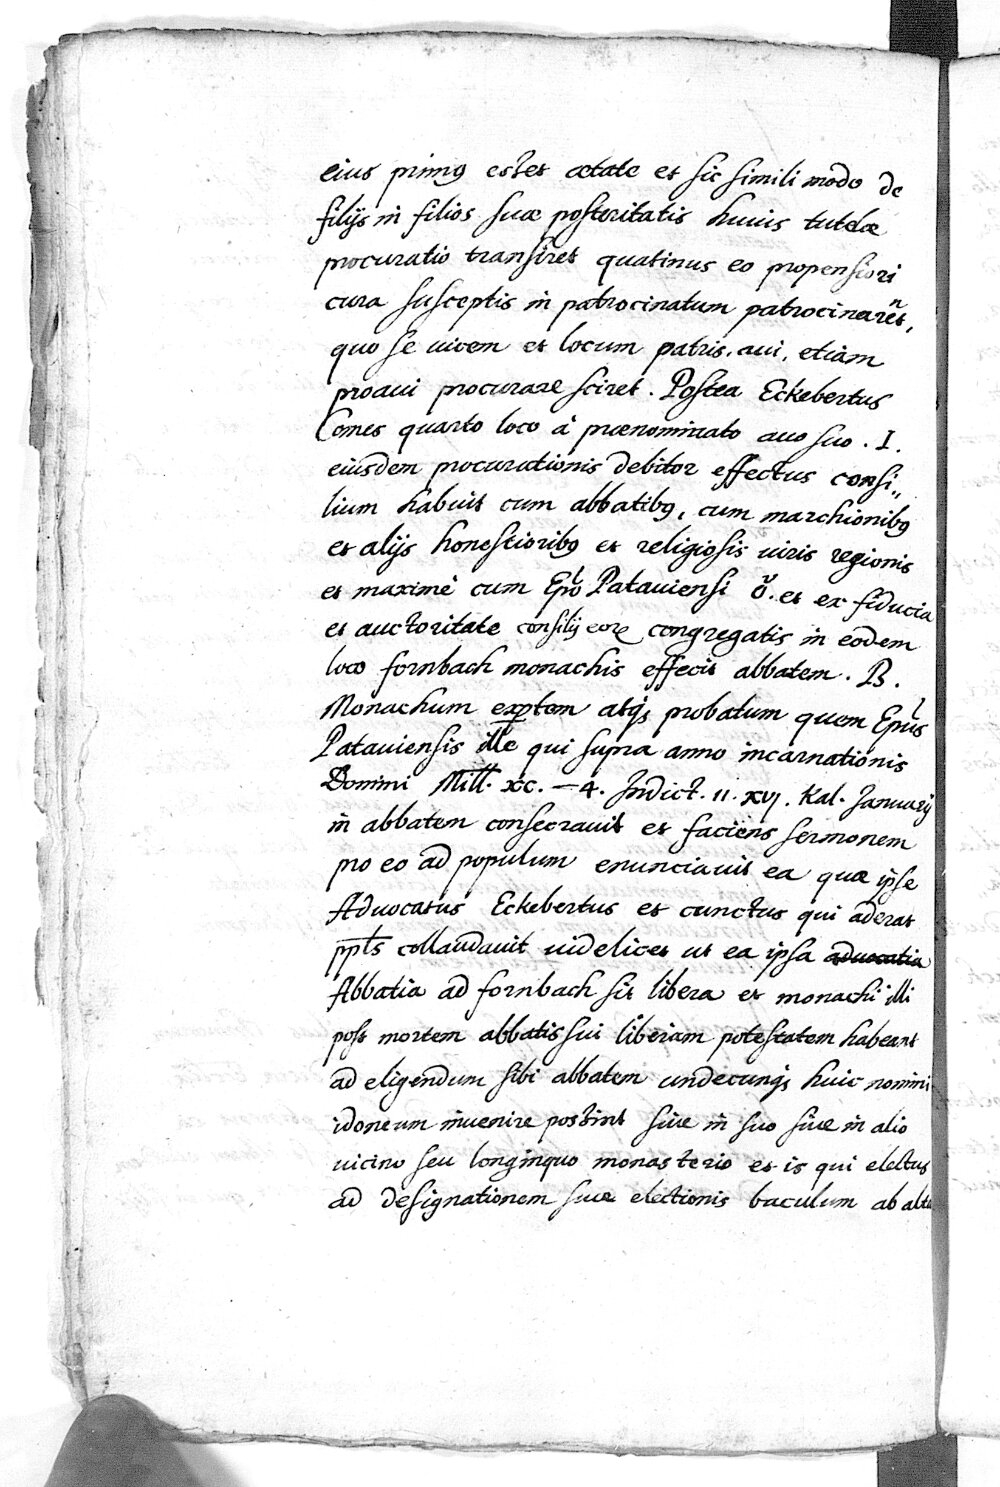 eius primꝰ esset ætate et sic simili modo de
filijs in filios suæ posteritatis huius tutelæ
procuratio transiret quatinus eo propensiori
cura susceptis in patrocinatum patrocinarent,
quo se uicem et locum patris, aui, etiam
proaui procurare sciret. Postea Eckebertus
Comes quarto loco à prænominato auo suo . I.
eiusdem procurationis debitor effectus consi„
lium habuit cum abbatibꝰ, cum marchionibꝰ
et alijs honestioribꝰ et religiosis uiris regionis
et maximè cum Epo Patauiensi ů. et ex fiducia
et auctoritate consilij eorꝝ congregatis in eodem
loco fornbach monachis effecit abbatem . B.
Monachum exptem atqs probatum quem Epus
Patauiensis ille qui supra anno incarnationis
Domini Mill. xc. – 4. Indict. 11. xvj. Kal. Januarij
in abbatem consecrauit et faciens sermonem
pro eo ad populum enunciauit ea quæ ipse
Aduocatus Eckebertus et cunctus qui aderat
ppls collaudauit uidelicet ut ea ipsa aduocatia
Abbatia ad fornbach sit libera et monachi illi
post mortem abbatis sui liberam potestatem habeant
ad eligendum sibi abbatem undecunqs huic nomini
idoneum inuenire possint siue in suo siue in alio
uicino seu longinquo monasterio et is qui electus
ad designationem suæ electionis baculum ab